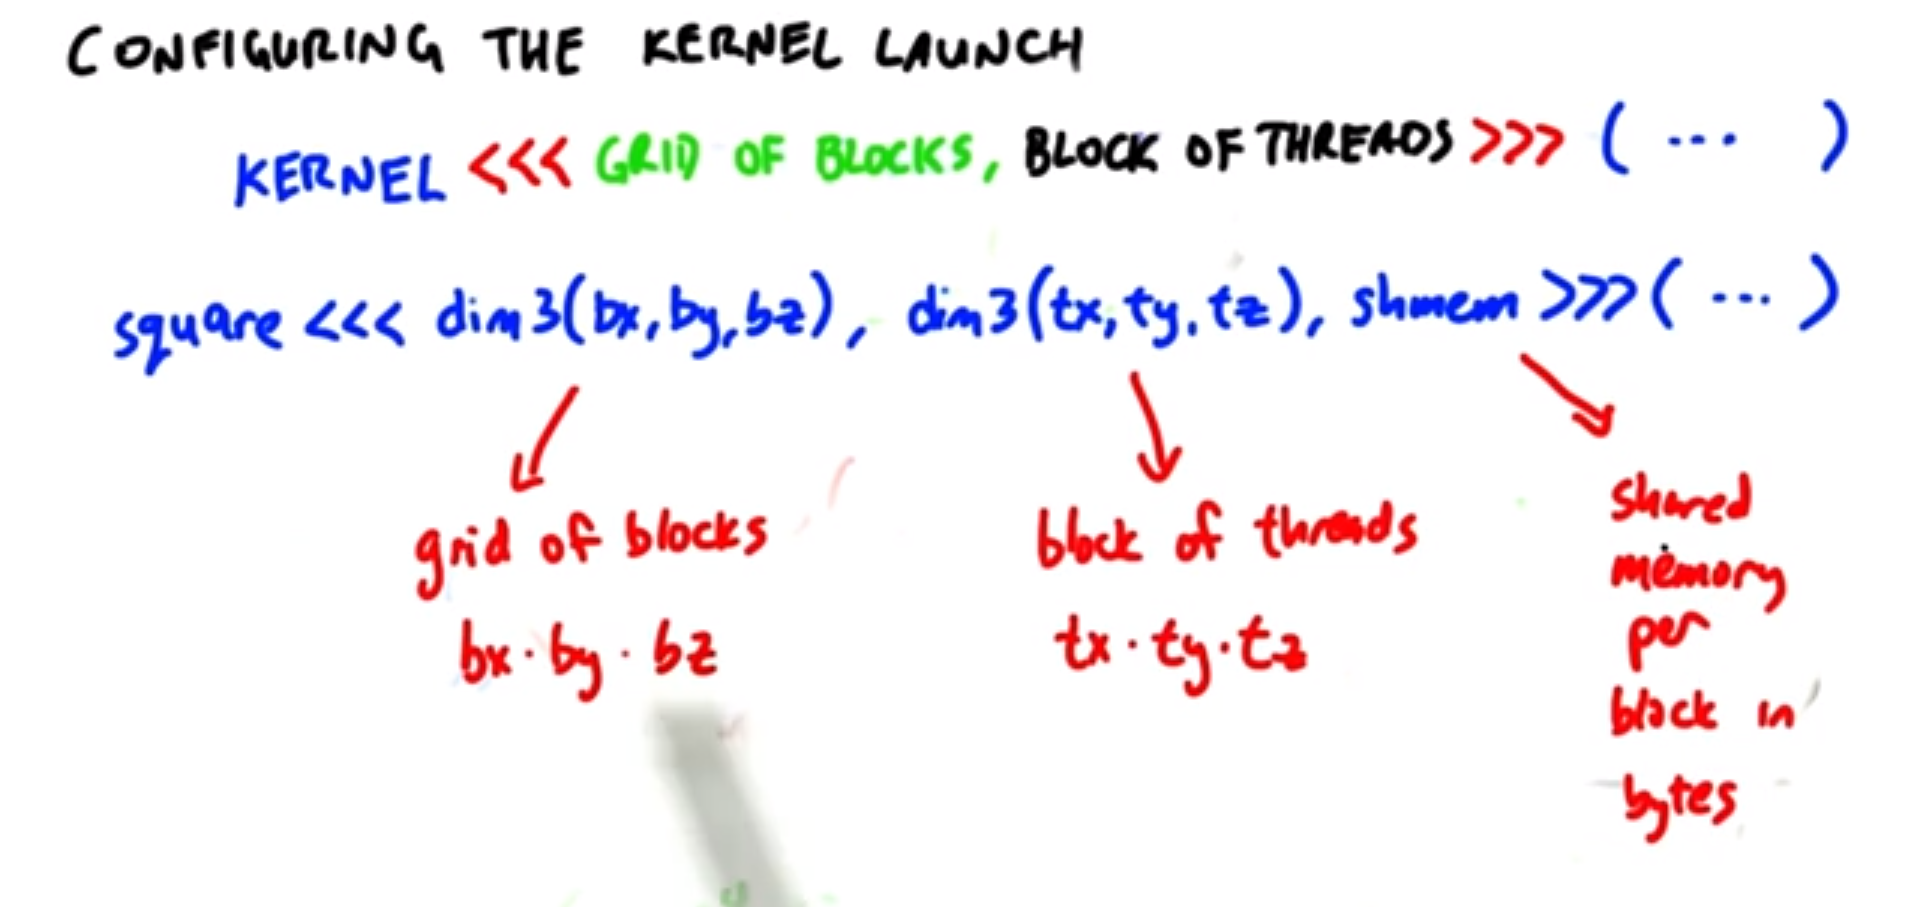 CONFIGURING THE KERNEL LAUNCH
KERNEL <<< GRID OF BLOCKS, BLOCK OF THREADS >>> ( ... )
square <<< dim3(bx,by,bz), dim3(tx,ty,tz), shmem >>> ( ... )
grid of blocks
bx · by · bz
block of threads
tx · ty · tz
shared
memory
per
block in
bytes